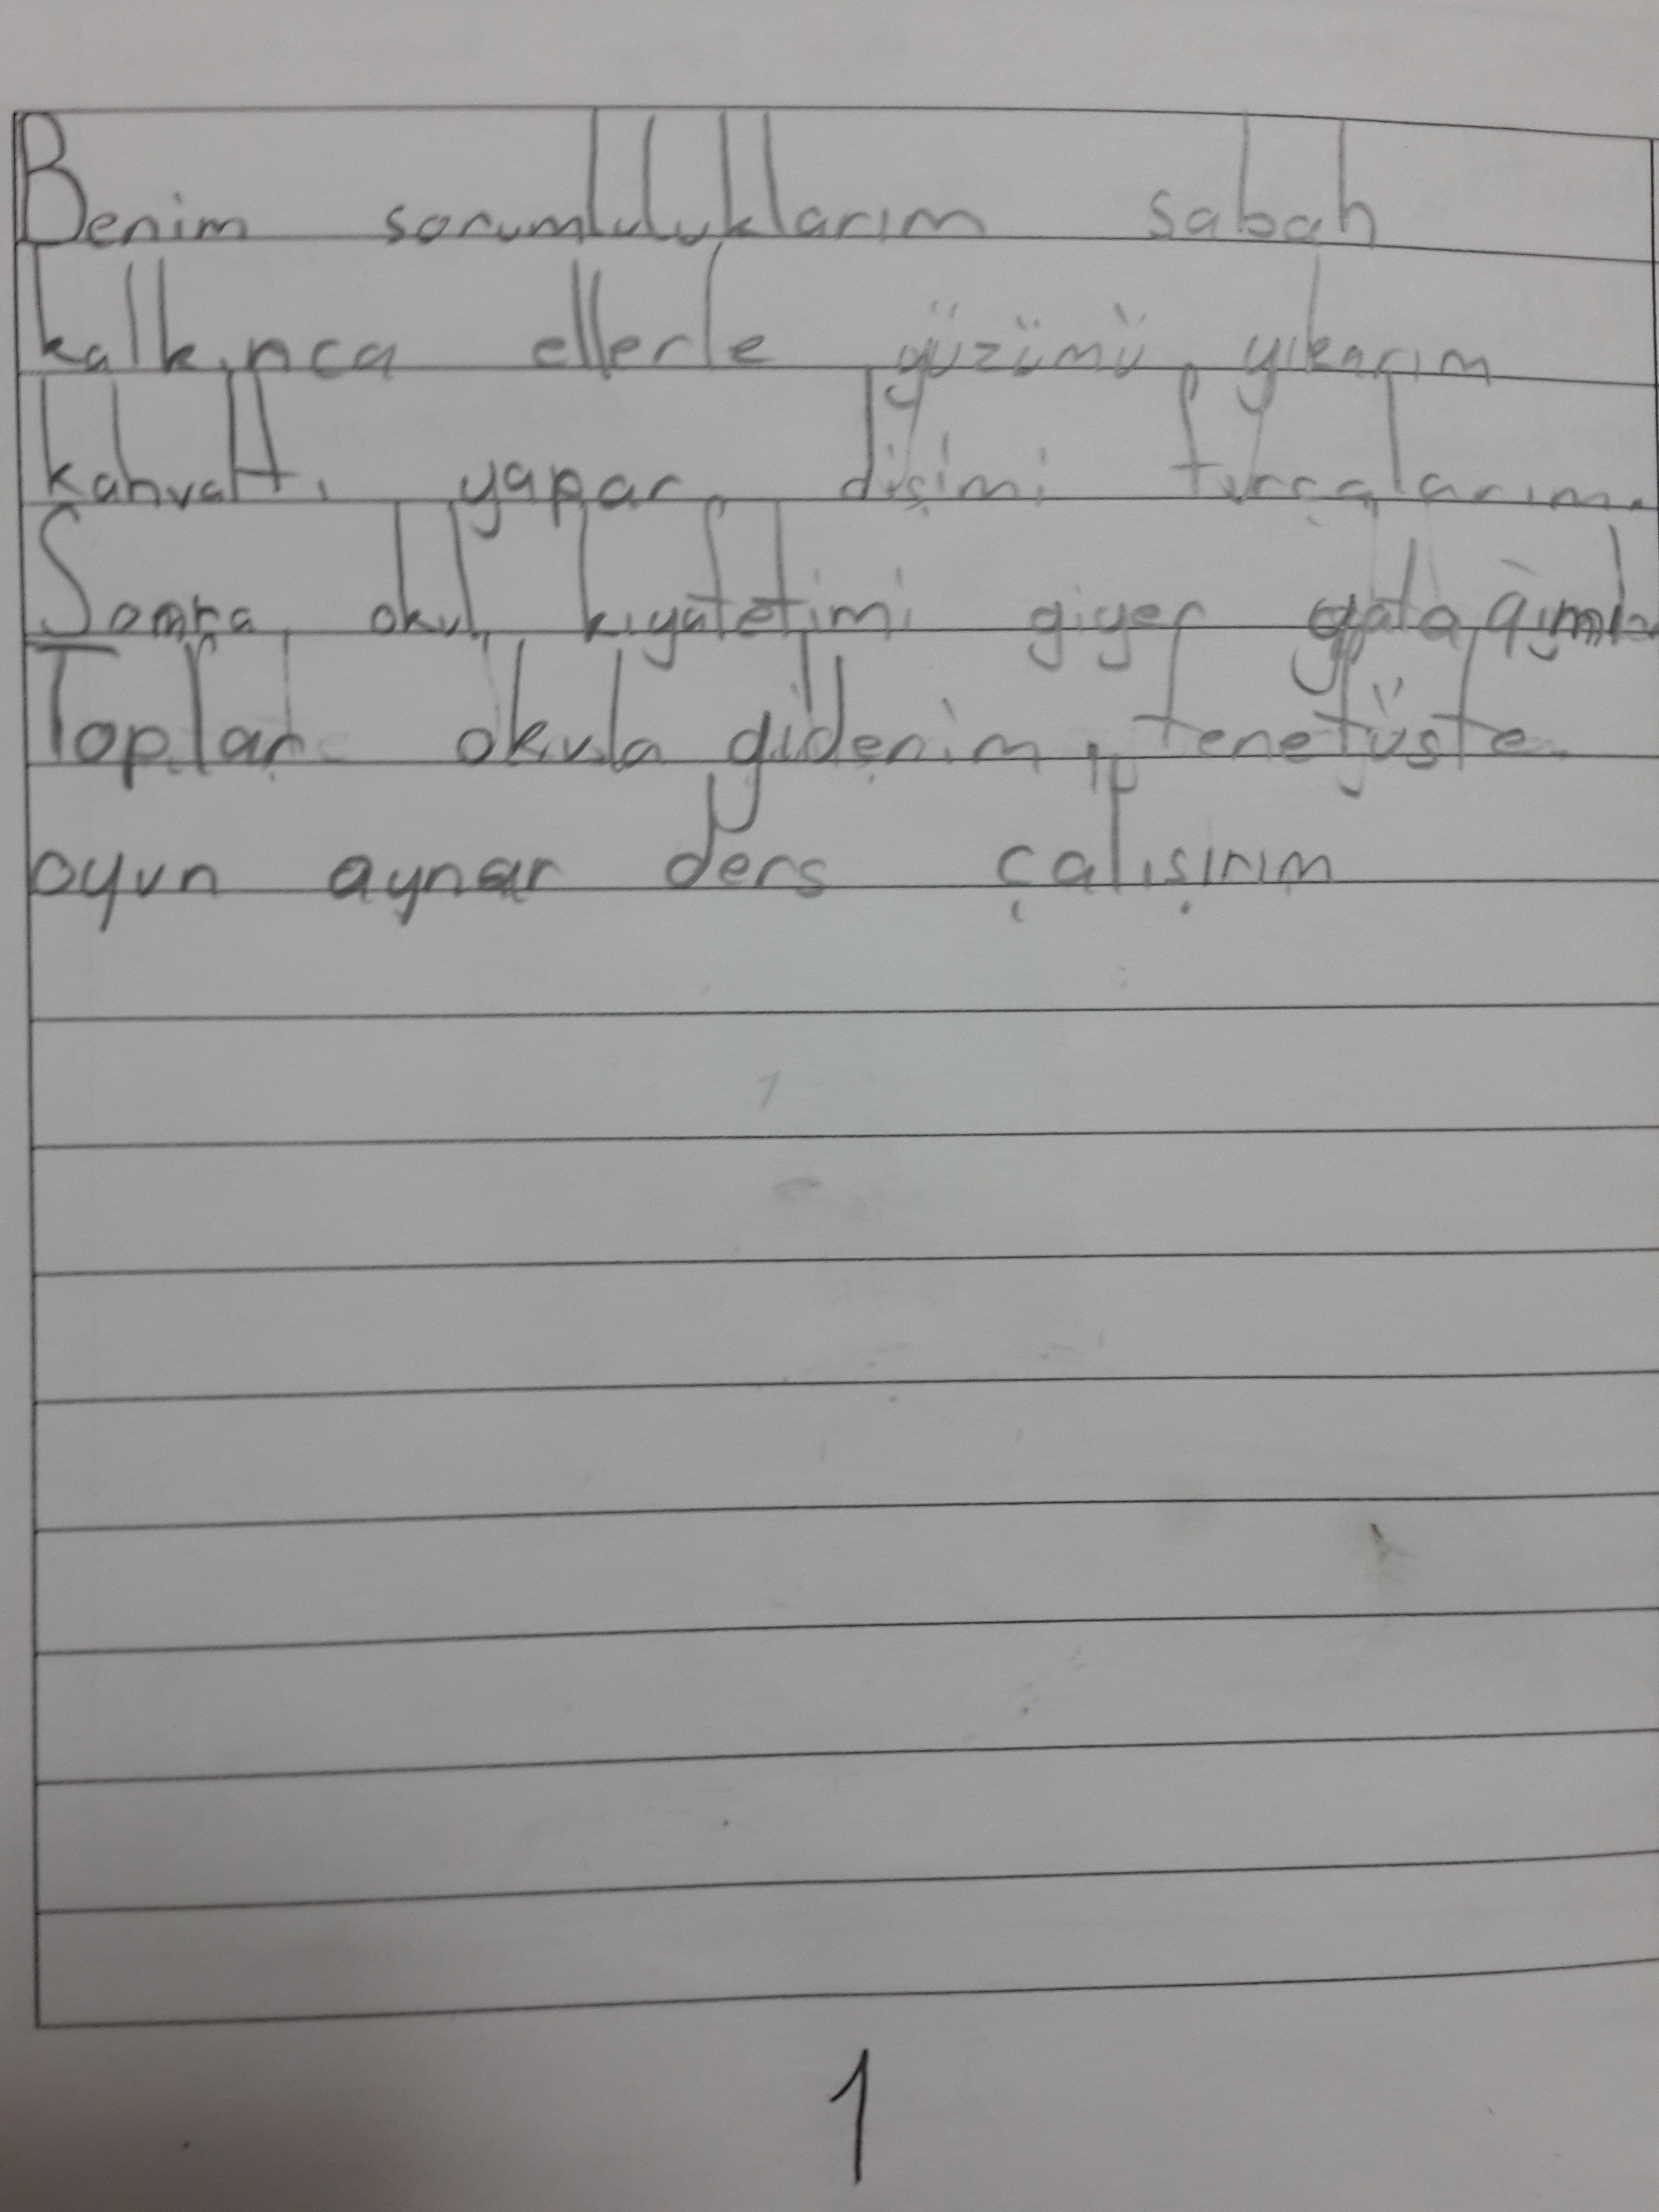 Benim sorumluluklarım sabah
kalkınca ellerle yüzümü yıkarım
kahvaltı yapar dişimi fırçalarım.
Sonra okul kıyafetimi giyer
Toplar okula giderim, tenefüste
oyun aynar ders çalışırım
1